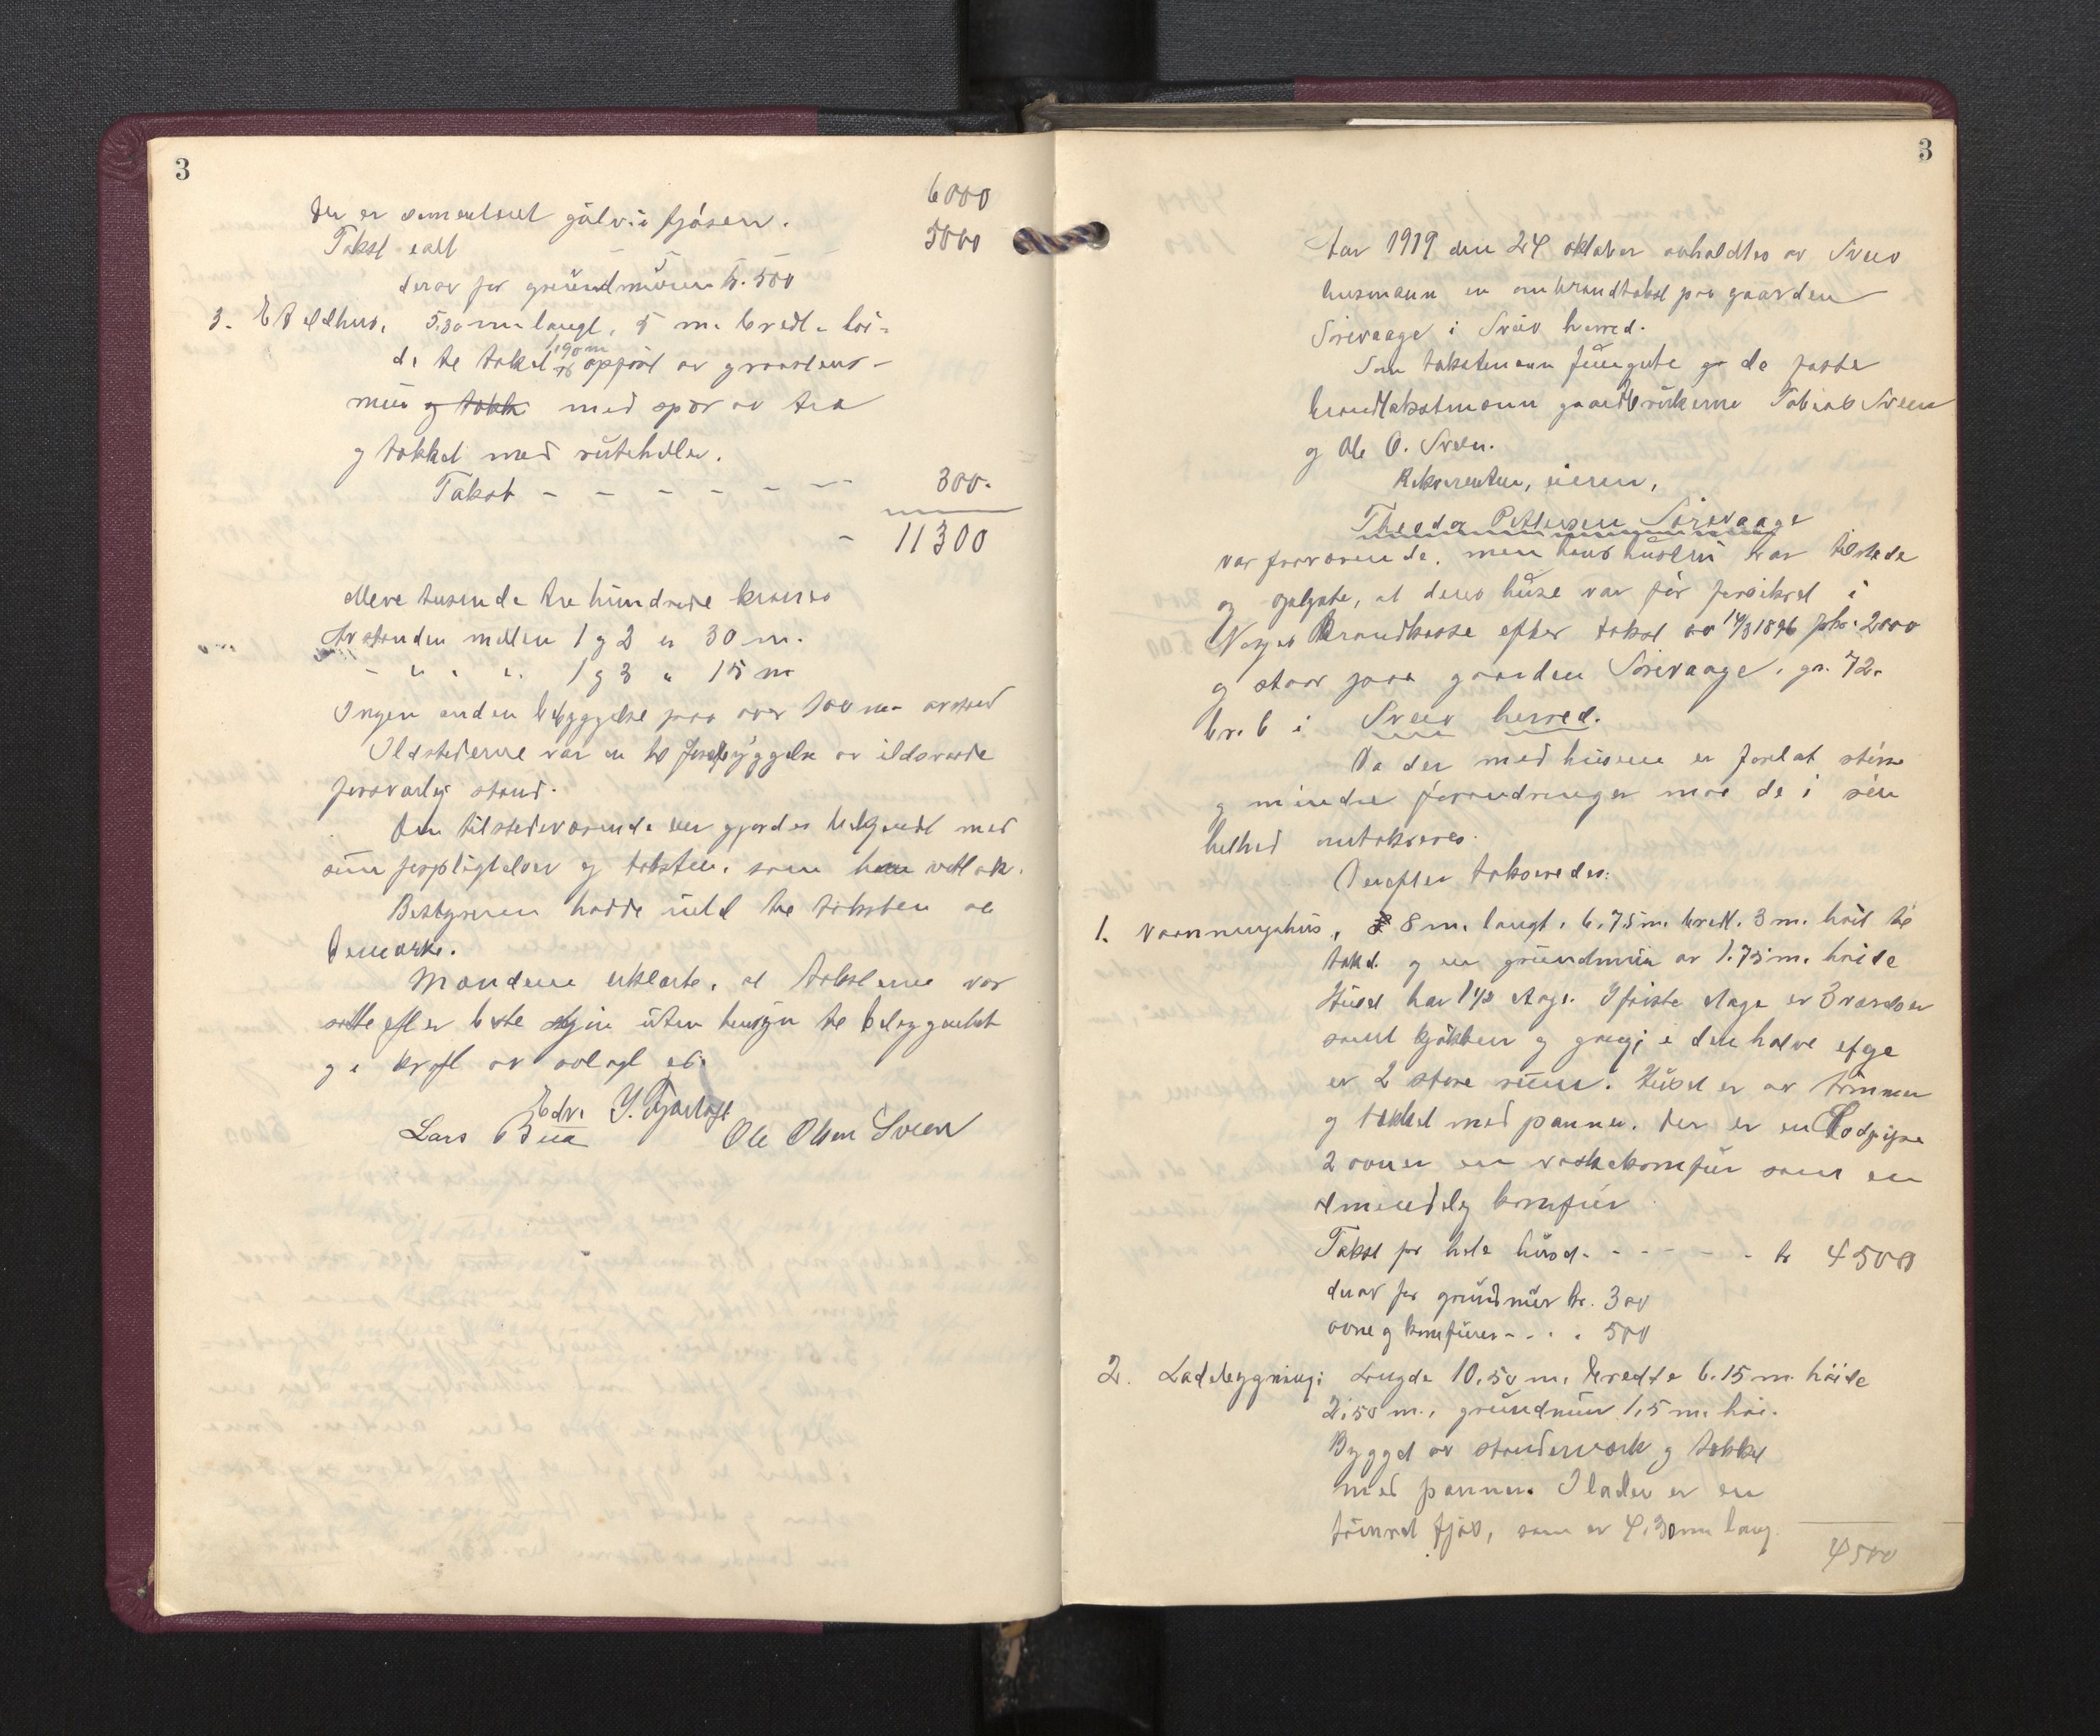 3
6000
Der er sementeret gólv i fjósen.
Takst ialt 5000
derav for grundmüren kr. 500
3. Et eldhus, 5.30 m. langt, 5 m. bredt, höi-
de te taket 1.90 m opfört av graastens-
mür og takk med sper av træ
og tækket med rüteheller.
Takst - - - - - - 300.
- 11300
elleve tusende tre hündrede kroner
Avstanden mellem 1 og 2 er 30 m.
- " " " 1 og 3 " 15 m
Ingen anden bebyggelse paa over 100 m. avstand
Ildstederne var en te forebyggelse av ildsvaade
forsvarlig stand.
Den tilstedeværende eier gjordes bekjendt med
sine forpligtelser og taksten, som han vedtok.
Bestyreren hadde intet te taksten at
bemærke.
Mændene erklærte, at taksterne var
satte efter beste skjön üten hensyn te beleggenhet
og i kraft av avlagt ed.
Edv. Y. Fjartoft
Lars Bua Ole Olsen Sveen
3
Aar 1919 den 24 oktober avholdtes av Sveio
lensmann en ombrandtakst paa gaarden
Sörevaage i Sveio herred.
Som takstmenn fungerte de faste
brandtakstmenn gaardbrükerne Tobias Sveen
og Ole O. Sveen.
Rekvirenten, eieren,
Theodor Pettersen Sörevaage
var fraværende, men hans hüstrü var tilstede
og oplyste, at deres hüse var för forsikret i
Norges Brandkasse efter takst av 14/3 1896 for kr. 2000
og staar paa gaarden Sörevaage, gr. 72.
br. 6 i Sveio herred.
Da der med hüsene er foretat större
og mindre forandringer maa de i sin
helhed omtakseres.
Derefter takseredes:
1. Vaaningshüs, 8 m. langt, 6.75 m. bredt, 3 m. höit te
taket og en grundmür av 1.75 m. höide
Hüset har 1 1/2 etage. I förste etage er 3 værelser
samt kjökken og gang; i den halve etage
er 2 store rüm. Hüset er av tömmer
og tækket med panner. Der er en Lodpipe
2 ovner en vaskekomfür samt en
almindelig komfür
Takst for hele hüset - - - - - kr 4500
derav for grundmür kr. 300
ovne og komfürer - - . . 500
2. Ladebygning: Længde 10.50 m, bredde 6.15 m höide
2.50 m., grundmür 1,5 m. höi.
Bygget av stenderverk og tækket
med panner. I laden er en
tömret fjös, som er 4.30 m lang.
4500